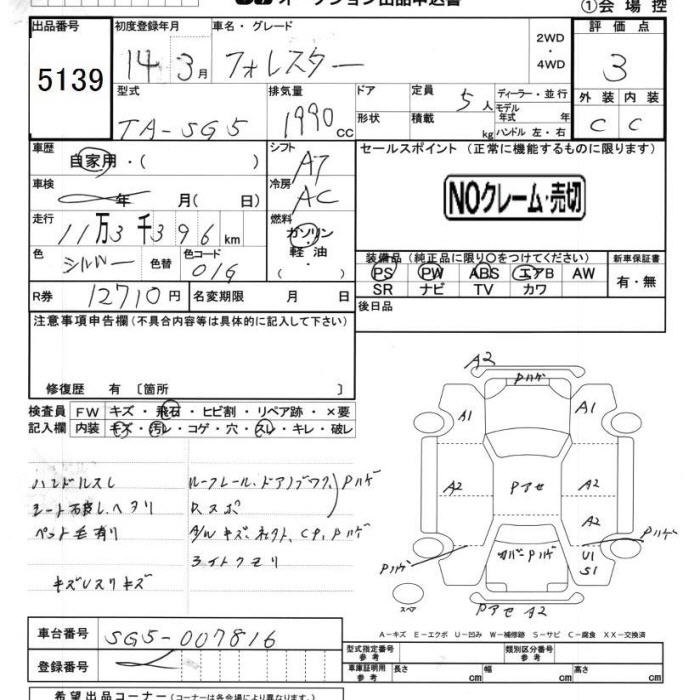 オークション出品申込書 ①会場控
出品番号 5139
初度登録年月 14年 3月
車名・グレード フォレスター
2WD・4WD
評価点 3
外装 C 内装 C
型式 TA-SG5
排気量 1990cc
ドア 形状
定員 5人 積載 kg
ディーラー・並行
モデル年式 年
ハンドル 左・右
車歴 自家用・( )
シフト AT
セールスポイント (正常に機能するものに限ります)
NOクレーム・売切
車検 年 月( 日)
冷房 AC
走行 11万3千396km
燃料 ガソリン・軽油
色 シルバー 色替 色コード 01G
装備品 (純正品に限り○をつけてください)
PS PW ABS エアB AW
SR ナビ TV カワ
新車保証書 有・無
R券 12710円 名変期限 月 日
後日品
注意事項申告欄 (不具合内容等は具体的に記入して下さい)
修復歴 有 〔箇所 〕
検査員記入欄
FW キズ・飛石・ヒビ割・リペア跡・×要
内装 キズ・汚レ・コゲ・穴・スレ・キレ・破レ
ハンドルスレ
シート
ペット毛有り
キズUスリキズ
ルーフレール・ドアノブ Pハゲ
Rスポ
A/W キズ、 Pハゲ
ライトクモリ
A2
Pハゲ
A1 A1
A2 Pアセ A2
A2
Pハゲ カバーPハゲ U1 Pハゲ
S1
スペア
Pアセ A2
A-キズ E-エクボ U-凹み W-補修跡 S-サビ C-腐食 XX-交換済
車台番号 SG5-007816
登録番号
型式指定番号 参考
類別区分番号 参考
車庫証明用 参考 長さ cm 幅 cm 高さ cm
希望出品コーナー (コーナーは各会場により異なります。)